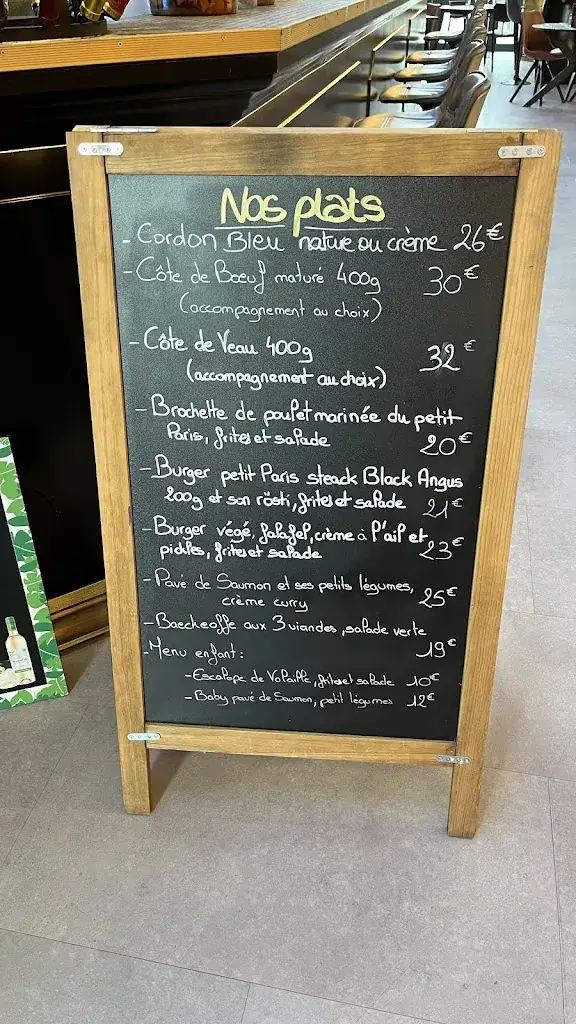 Nos plats
- Cordon Bleu nature ou crème 26€
- Côte de Bœuf maturé 400g 30€
(accompagnement au choix)
- Côte de Veau 400g 32€
(accompagnement au choix)
- Brochette de poulet marinée du petit
Paris, frites et salade 20€
- Burger petit Paris steack Black Angus
200g et son rösti, frites et salade 21€
- Burger végé, falafel, crème à l'ail et
pickles, frites et salade 23€
- Pavé de Saumon et ses petits légumes,
crème curry 25€
- Baeckeoffe aux 3 viandes, salade verte 19€
- Menu enfant:
- Escalope de Volaille, frites et salade 10€
- Baby pavé de Saumon, petit légumes 12€